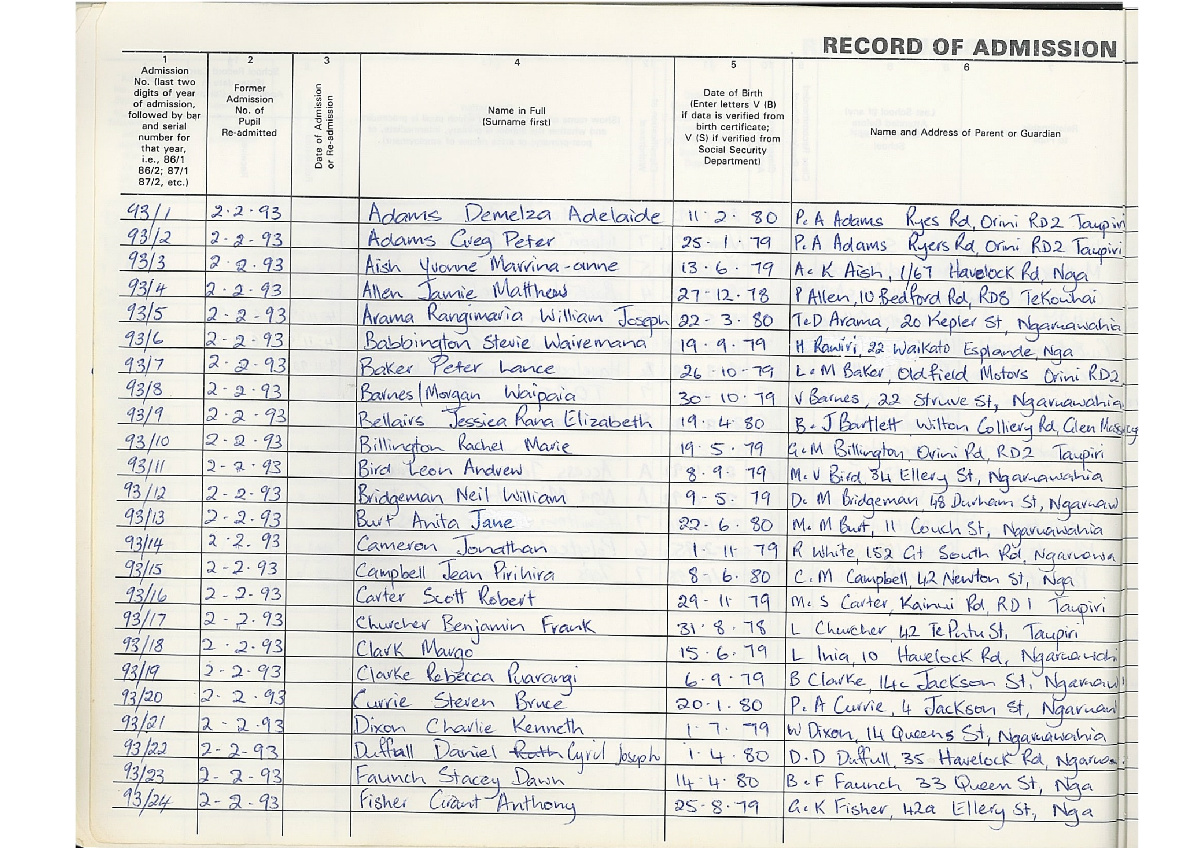 RECORD OF ADMISSION
1 2 3 4 5 6
Admission No. (last two digits of year of admission, followed by bar and serial number for that year, i.e., 86/1 86/2; 87/1 87/2, etc.)
Former Admission No. of Pupil Re-admitted
Date of Admission or Re-admission
Name in Full (Surname first)
Date of Birth (Enter letters V (B) if data is verified from birth certificate; V (S) if verified from Social Security Department)
Name and Address of Parent or Guardian
93/1 2·2·93 Adams Demelza Adelaide 11·2·80 P & A Adams Ryes Rd, Orini RD2 Taupiri
93/2 2-2-93 Adams Greg Peter 25·1·79 P & A Adams Ryers Rd, Orini RD2 Taupiri
93/3 2·2·93 Aish Yvonne Marrina-anne 13·6·79 A & K Aish, 1/67 Havelock Rd, Nga
93/4 2·2·93 Allen Jamie Matthew 27-12-78 P Allen, 10 Bedford Rd, RD8 TeKowhai
93/5 2-2-93 Arama Rangimaria William Joseph 22-3-80 T & D Arama, 20 Kepler St, Ngaruawahia
93/6 2-2-93 Babbington Stevie Wairemana 19·9·79 H Rawiri, 22 Waikato Esplande, Nga
93/7 2·2·93 Baker Peter Lance 26-10-79 L & M Baker, Oldfield Motors Orini RD2
93/8 2-2-93 Barnes/Morgan Waipaia 30-10-79 V Barnes, 22 Struve St, Ngaruawahia
93/9 2·2·93 Bellairs Jessica Rana Elizabeth 19·4·80 B & J Bartlett Wilton Colliery Rd, Glen Massey
93/10 2-2-93 Billington Rachel Marie 19·5·79 G & M Billington, Orini Rd, RD2 Taupiri
93/11 2-2-93 Bird Leon Andrew 8-9-79 M & V Bird 34 Ellery St, Ngaruawahia
93/12 2-2-93 Bridgeman Neil William 9-5-79 D & M Bridgeman, 48 Durham St, Ngaruaw
93/13 2-2-93 Burt Anita Jane 22-6-80 M & M Burt, 11 Couch St, Ngaruawahia
93/14 2·2·93 Cameron Jonathan 1·11·79 R White, 152 Gt South Rd, Ngaruawa
93/15 2-2-93 Campbell Jean Pirihira 8-6-80 C & M Campbell, 42 Newton St, Nga
93/16 2-2-93 Carter Scott Robert 29-11-79 M & S Carter, Kainui Rd, RD 1 Taupiri
93/17 2-2-93 Churcher Benjamin Frank 31·8·78 L Churcher, 42 TePutu St, Taupiri
93/18 2-2-93 Clark Margo 15·6·79 L Inia, 10 Havelock Rd, Ngaruawahi
93/19 2-2-93 Clarke Rebecca Puarangi 6-9-79 B Clarke, 14c Jackson St, Ngaruawh
93/20 2-2-93 Currie Steven Bruce 20-1-80 P & A Currie, 4 Jackson St, Ngaruaw
93/21 2-2-93 Dixon Charlie Kenneth 1·7·79 W Dixon, 14 Queens St, Ngaruawahia
93/22 2-2-93 Duffull Daniel Cyril Joseph 1·4·80 D & D Duffull, 35 Havelock Rd, Ngarua
93/23 2-2-93 Faunch Stacey Dawn 14·4·80 B & F Faunch 33 Queen St, Nga
93/24 2-2-93 Fisher Grant Anthony 25-8-79 G & K Fisher, 42a Ellery St, Nga